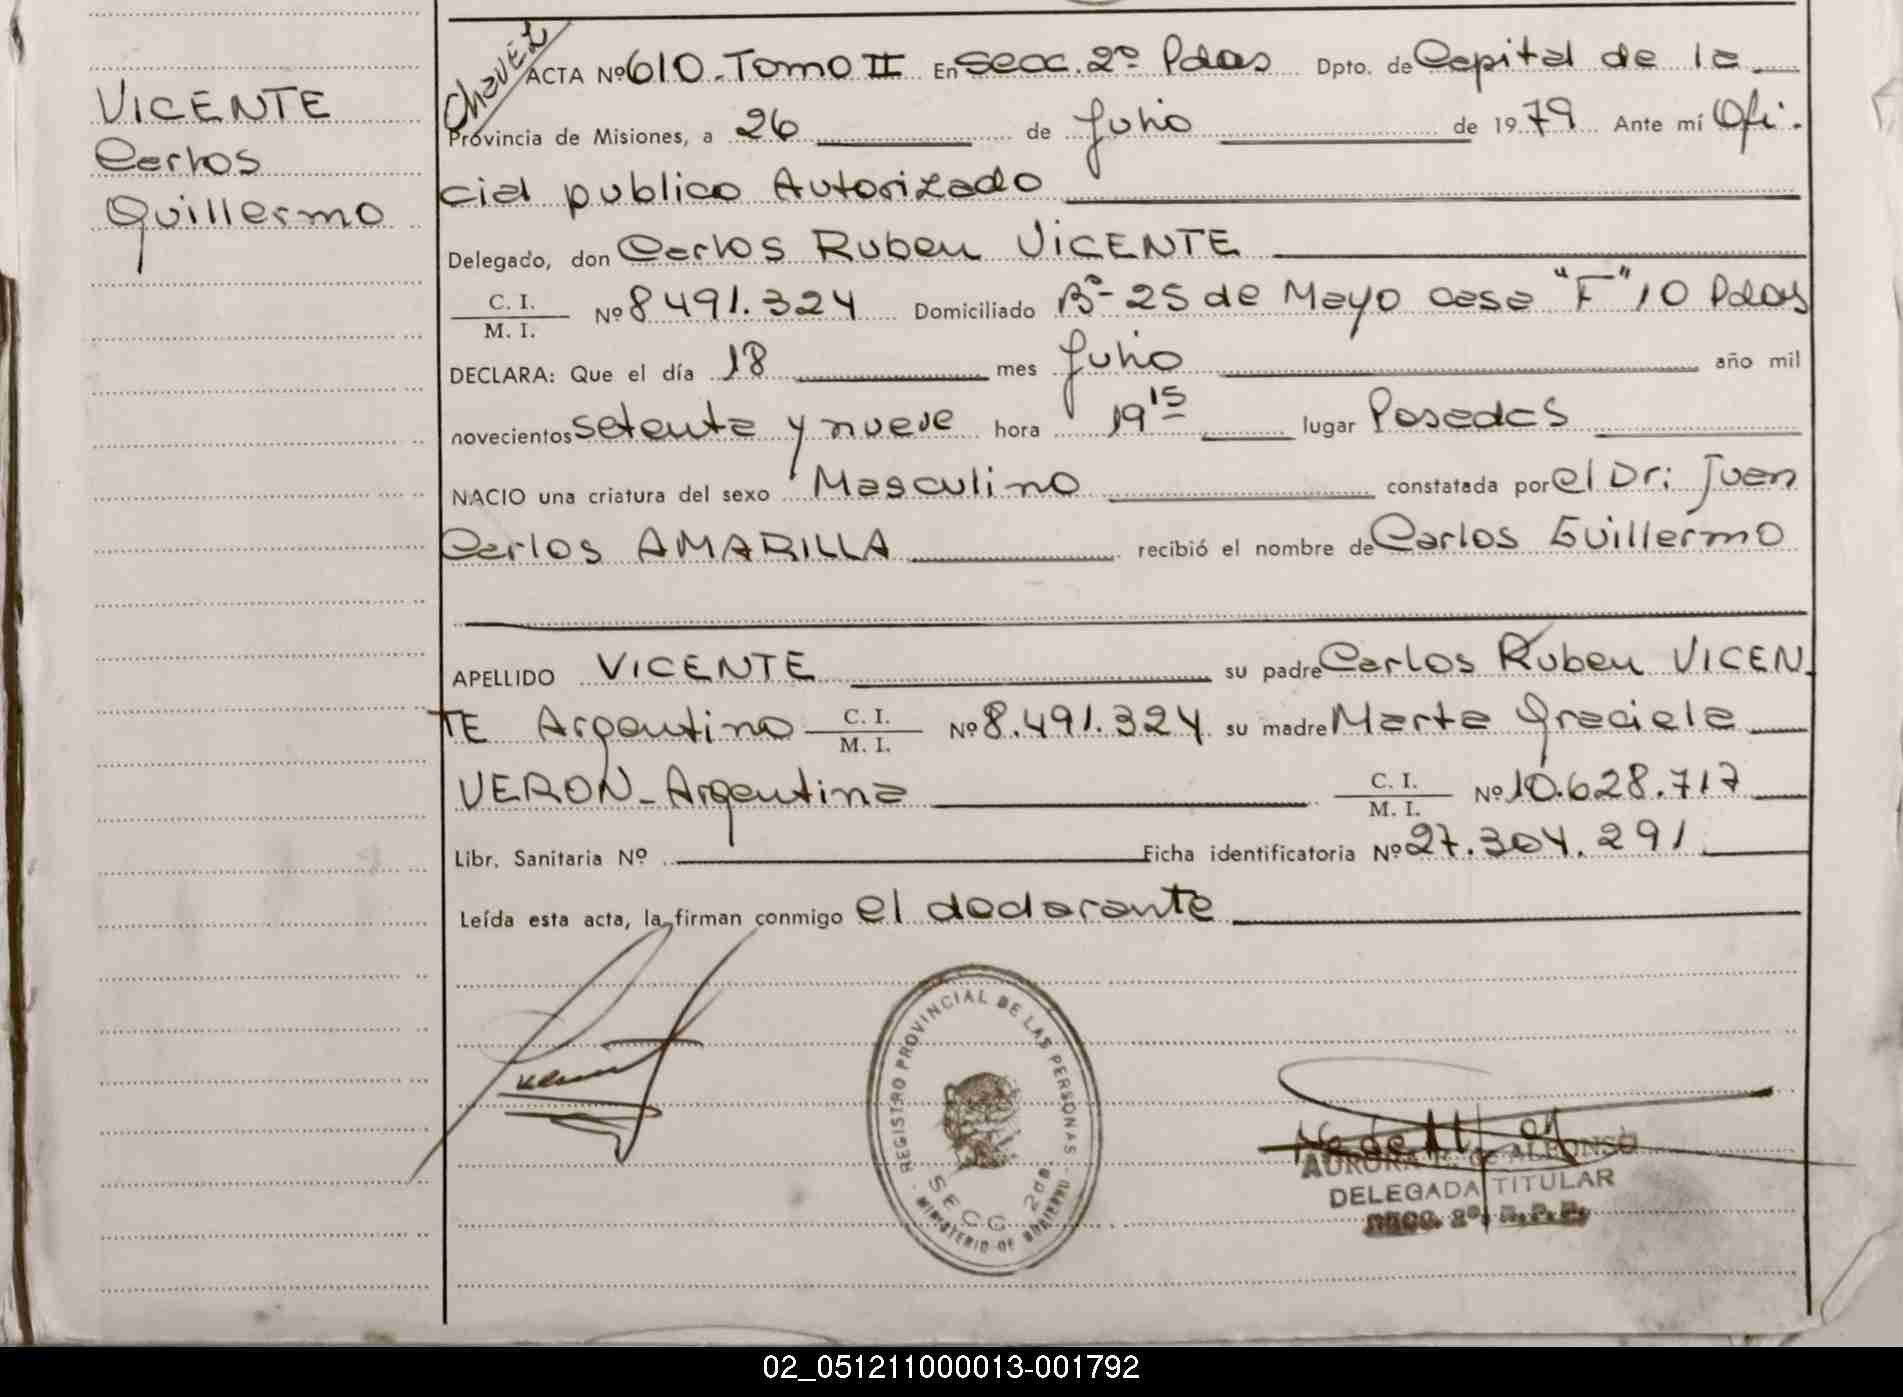 VICENTE
Carlos
Guillermo
Chavez
ACTA Nº 610. Tomo II En Secc. 2º Pdas Dpto. de Capital de la
Provincia de Misiones, a 26 de Julio de 1979 Ante mí Ofi.
cial publico Autorizado
Delegado, don Carlos Ruben VICENTE
C. I.
M. I.
Nº 8491.324 Domiciliado Bº- 25 de Mayo casa "F" 10 Pdas
DECLARA: Que el día 18 mes Julio año mil
novecientos setenta y nueve hora 19 15 lugar Posadas
NACIO una criatura del sexo Masculino constatada por el Dr: Juan
Carlos AMARILLA recibió el nombre de Carlos Guillermo
APELLIDO VICENTE su padre Carlos Ruben VICEN.
TE Argentino C. I.
M. I.
Nº 8.491.324 su madre Marta Graciela
VERON - Argentina C. I.
M. I.
Nº 10.628.717
Libr. Sanitaria Nº Ficha identificatoria Nº 27.304.291
Leída esta acta, la firman conmigo el declarante
REGISTRO PROVINCIAL DE LAS PERSONAS
SECC 2da.
MINISTERIO DE GOBIERNO
AURORA de ALFONSO
DELEGADA TITULAR
SECC. 2º. R.P.P.
02_051211000013-001792